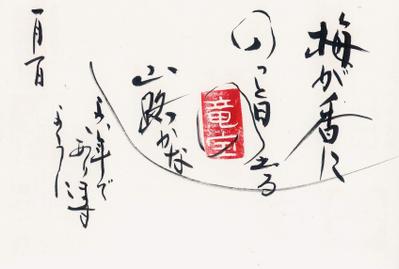 梅が香に
のつと日出る
山路かな
竜宝
よい年で
ありますように
一月一日